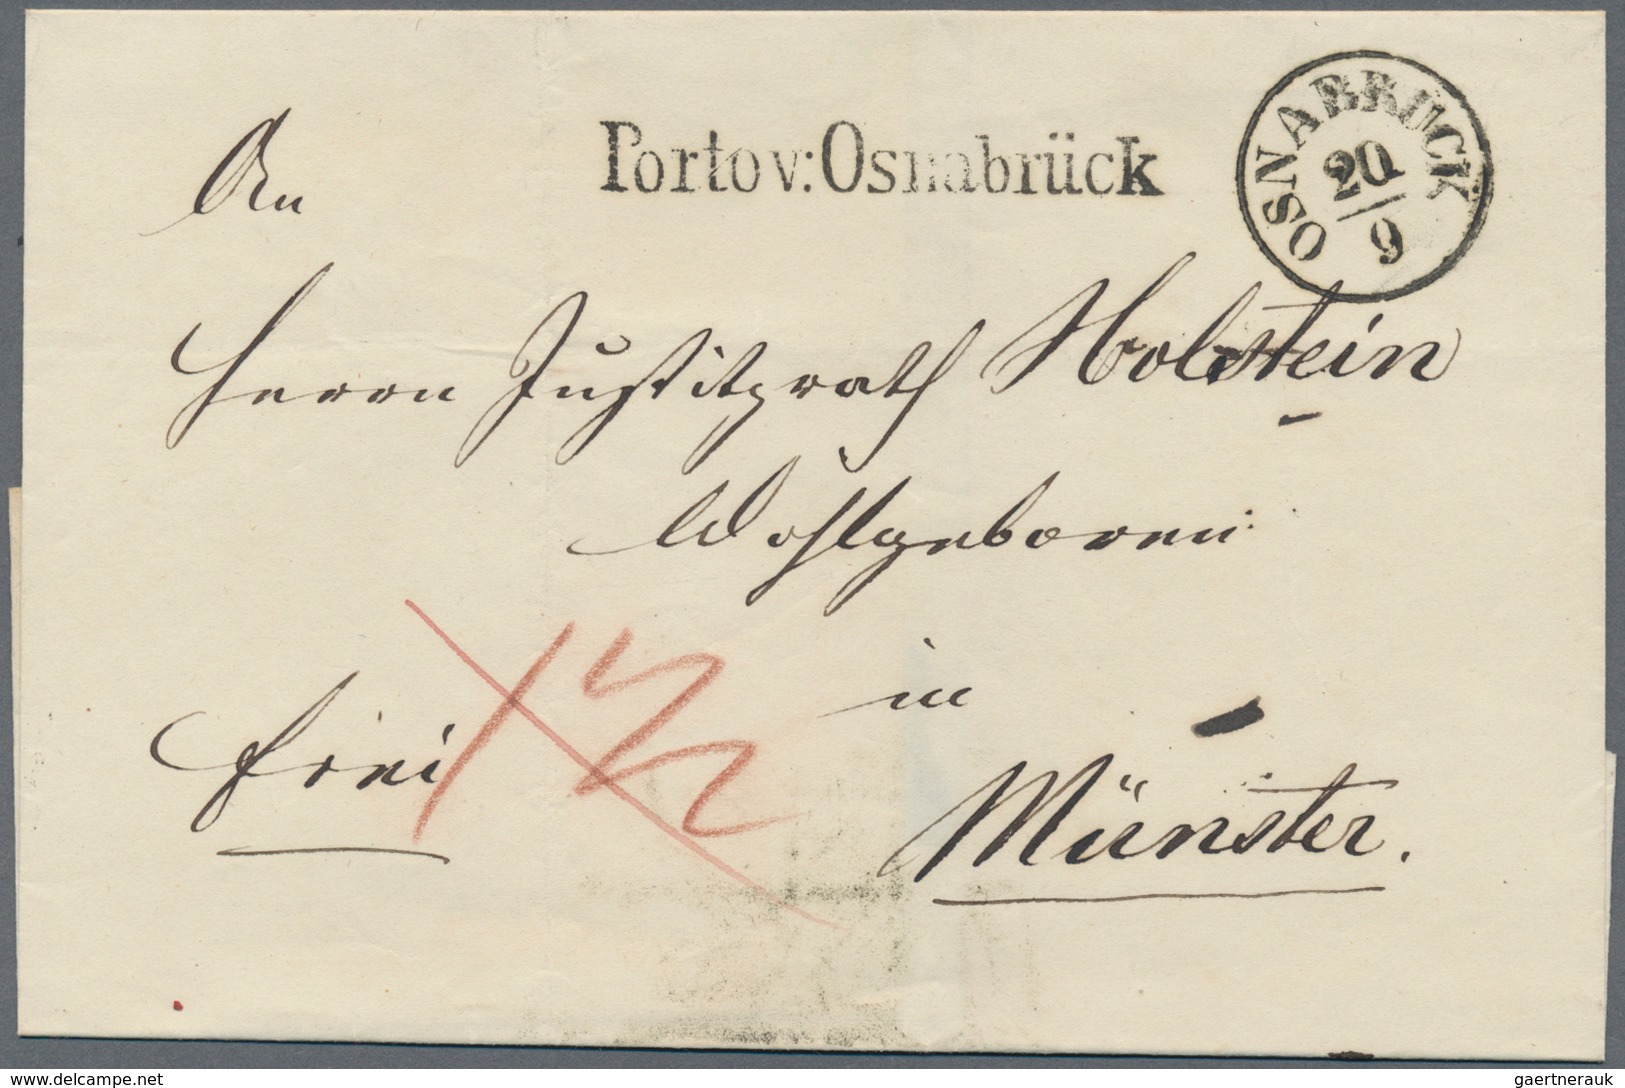 Porto v: Osnabrück
OSNABRÜCK
20/9
An
Herrn Justitzrath Holstein
Wohlgeboren
in
frei
Münster.
© delcampe.net
gaertnerauk